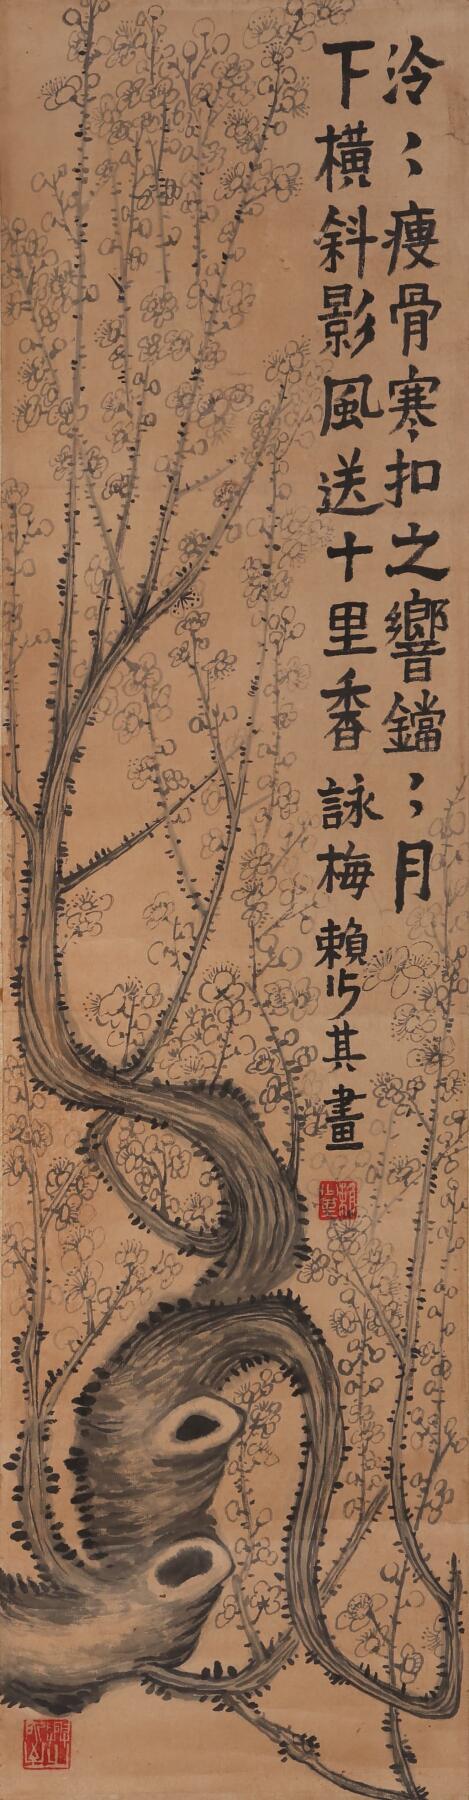 泠〻瘦骨寒扣之響鐺〻月
下橫斜影風送十里香詠梅賴少其畫